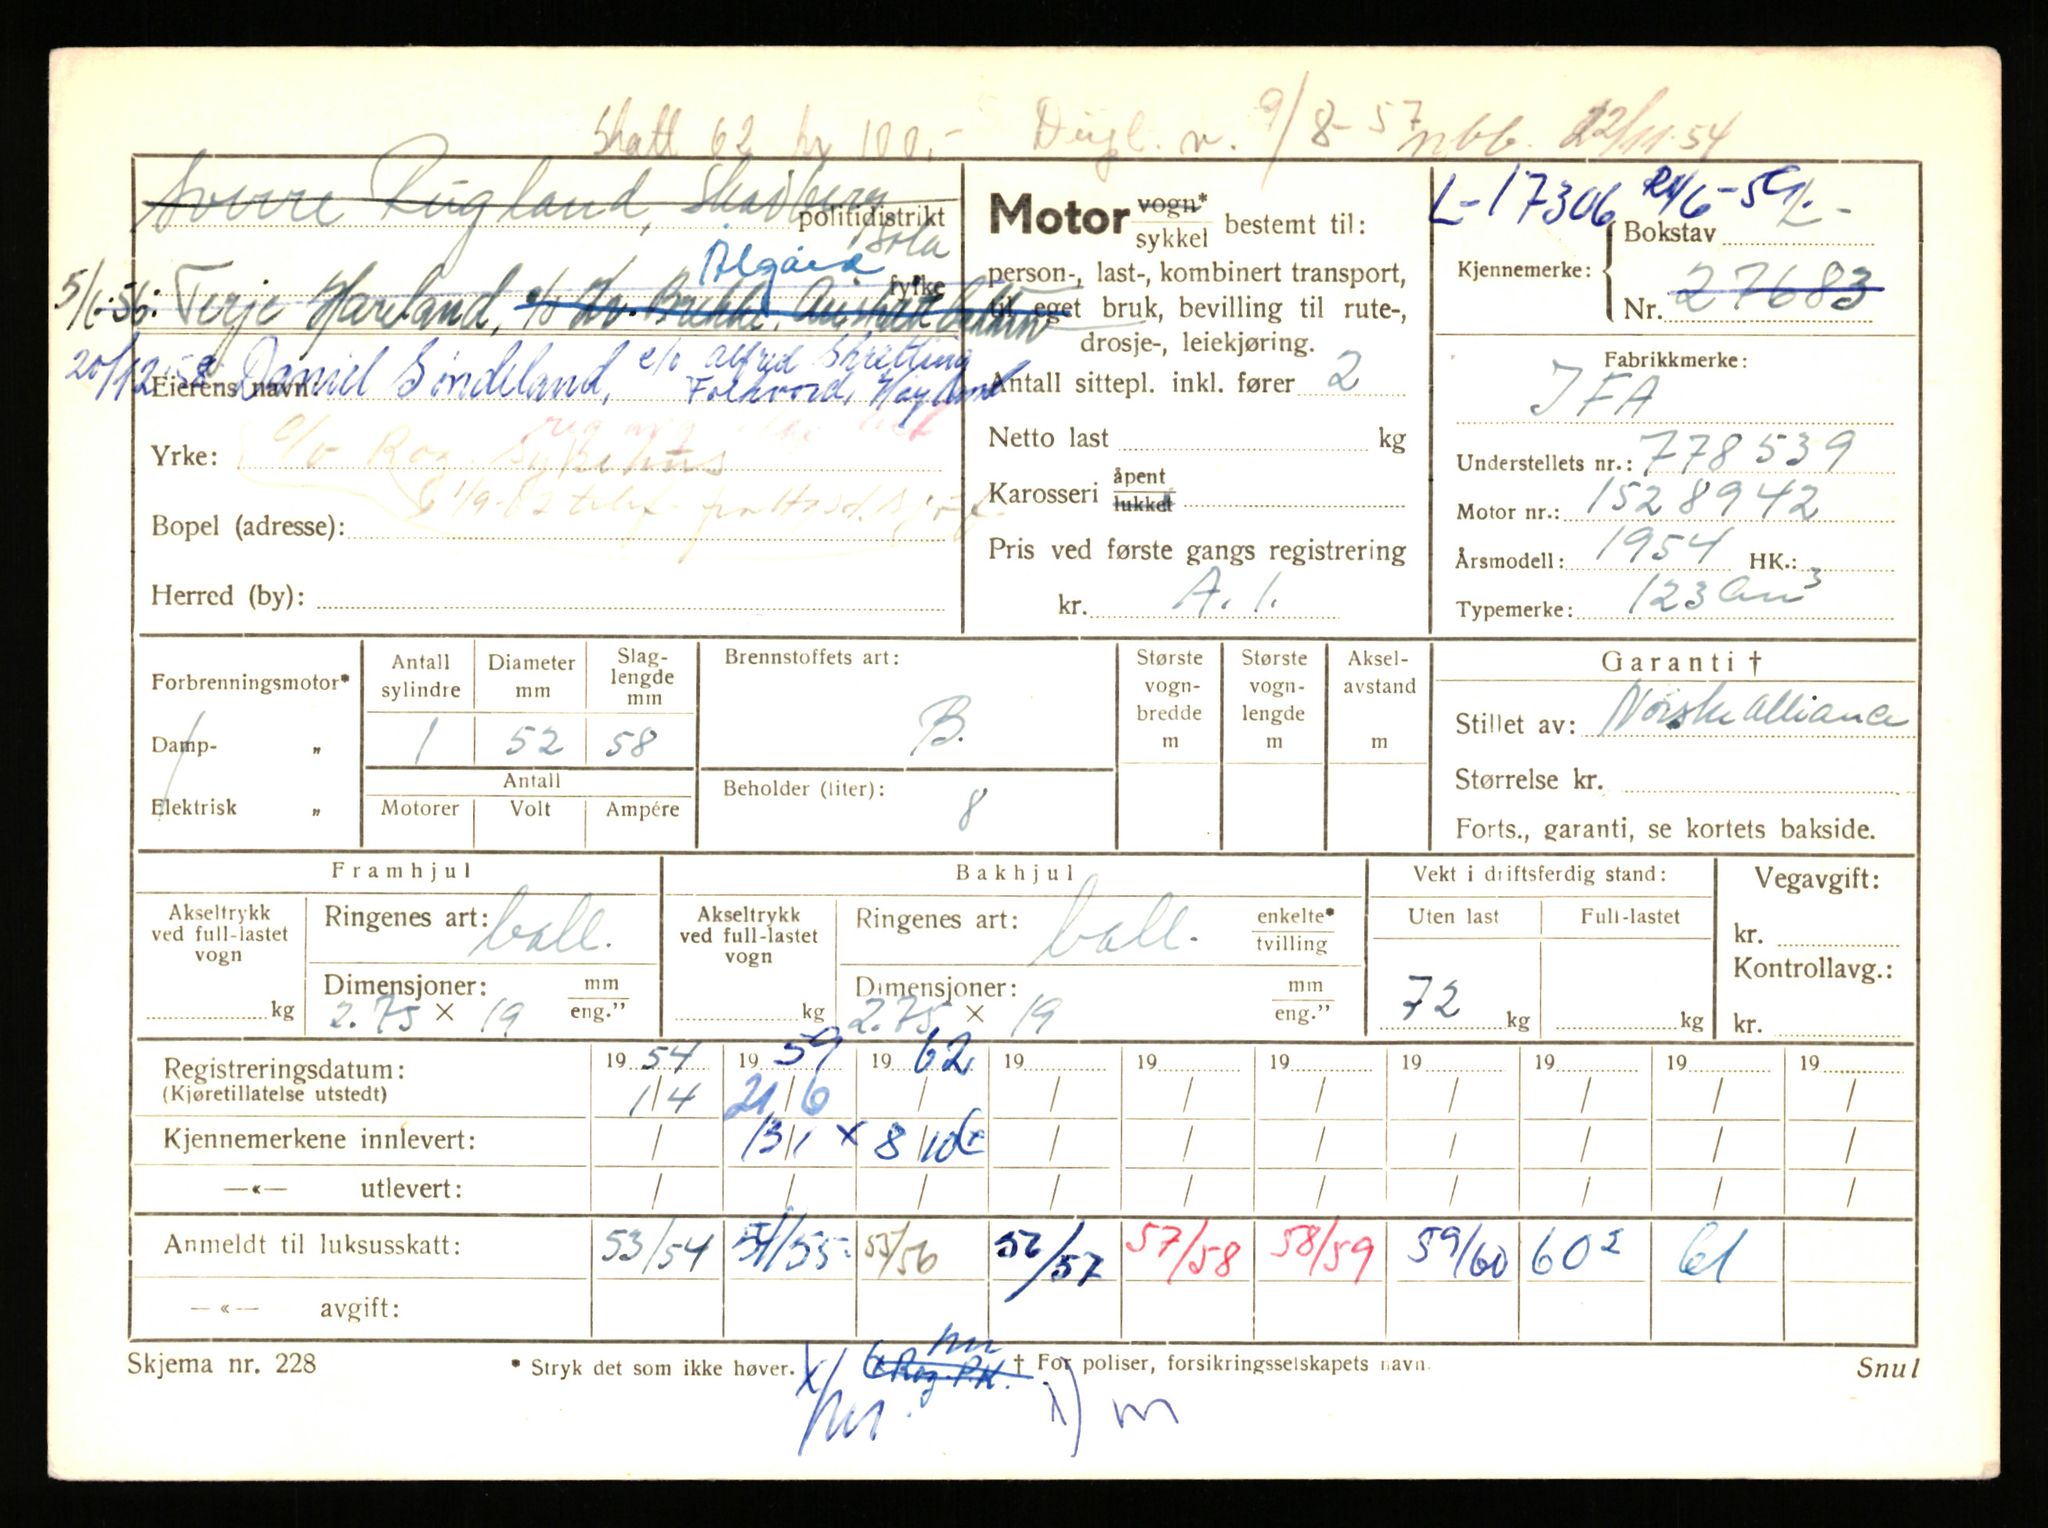 Skatt 62 kr 100.- Dupl. n. 9/8-57 nbb. 22/11.54
Sverre Rugland, Skadberg
politidistrikt
Sola
Ålgård
fylke
5/1-56: Terje Hareland,
20/12 58 Daniel Søndeland, c/o Alfred Skretting
Eierens navn: Folkvord, Høyland
Yrke: c/o Rog. Sykehus
Bopel (adresse):
Herred (by):
Motor vogn*
sykkel bestemt til:
person-, last-, kombinert transport,
til eget bruk, bevilling til rute-,
drosje-, leiekjøring.
Antall sittepl. inkl. fører 2
Netto last kg
Karosseri åpent
lukket
Pris ved første gangs registrering
kr. A. 1.
L-17306
Kjennemerke: Bokstav L-
Nr. 27683
Fabrikkmerke:
IFA
Understellets nr.: 778539
Motor nr.: 1528942
Årsmodell: 1954 HK.:
Typemerke: 123 cm³
Forbrenningsmotor*
Damp- „
Elektrisk „
Antall sylindre Diameter mm Slag-lengde mm
1 52 58
Antall
Motorer Volt Ampére
Brennstoffets art:
B.
Beholder (liter):
8
Største vogn-bredde m
Største vogn-lengde m
Aksel-avstand m
Garanti †
Stillet av: Norske Alliance
Størrelse kr.
Forts., garanti, se kortets bakside.
Framhjul
Akseltrykk ved full-lastet vogn kg
Ringenes art: ball.
Dimensjoner: mm
2.75 × 19 eng.”
Bakhjul
Akseltrykk ved full-lastet vogn kg
Ringenes art: ball. enkelte*
tvilling
Dimensjoner: mm
2.75 × 19 eng.”
Vekt i driftsferdig stand:
Uten last Full-lastet
72 kg kg
Vegavgift:
kr.
Kontrollavg.:
kr.
Registreringsdatum: 19 54 19 59 19 62 19 19 19 19 19 19 19
(Kjøretillatelse utstedt) 1/4 21/6 / / / / / / / /
Kjennemerkene innlevert: / 13/1 x 8/10 / / / / / / /
—«— utlevert: / / / / / / / / / /
Anmeldt til luksusskatt: 53/54 54/55 55/56 56/57 57/58 58/59 59/60 60² 61
—«— avgift:
Skjema nr. 228 * Stryk det som ikke høver. † For poliser, forsikringsselskapets navn. Snul
x/ Rog. P.K.